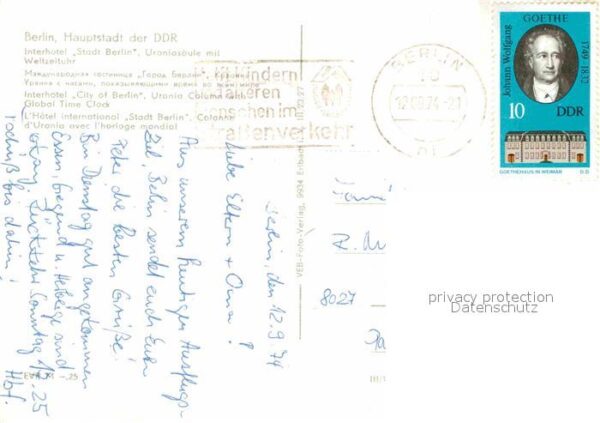 Berlin, Hauptstadt der DDR
Interhotel „Stadt Berlin", Uraniasäule mit
Weltzeituhr
Международная гостиница „Город Берлин", Колонна
Урания с часами, показывающими время во всем мире
Interhotel „City of Berlin", Urania Column with
Global Time Clock
L'Hôtel international „Stadt Berlin", Colonne
d'Urania avec l'horloge mondial
Kindern
älteren
Menschen im
Straßenverkehr
BERLIN
12.09.74-21
Johann Wolfgang
GOETHE
1749 - 1832
10 DDR
GOETHEHAUS IN WEIMAR
Berlin, den 12.9.74
Liebe Eltern + Oma!
Aus unserem heutigen Ausflugs-
ziel Berlin sendet euch Euer
die besten Grüße!
Bin Dienstag gut angekommen
Essen, Gegend u. Herberge sind
Rückkehr Sonntag 17.25
Hbf.
Tschüß bis dahin!
VEB-Foto-Verlag, 9934 Erlbach
8027
EVP M -,25
III/1
privacy protection
Datenschutz